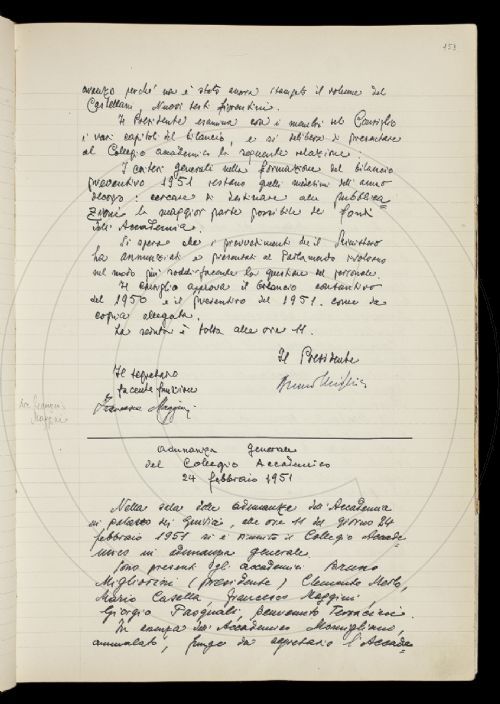 153
avanzo perché non è stato ancora stampato il volume del
Castellani, Nuovi testi fiorentini.
Il Presidente esamina con i membri del Consiglio
i vari capitoli del bilancio, e si delibera di presentare
al Collegio accademico la seguente relazione:
I criteri generali nella formazione del bilancio
preventivo 1951 restano quelli medesimi dell'anno
scorso: cercare di destinare alle pubblica-
zioni la maggior parte possibile dei fondi
dell'Accademia.
Si spera che i provvedimenti che il Ministero
ha annunziati e presentati al Parlamento risolvano
nel modo più soddisfacente la questione del personale.
Il Consiglio approva il bilancio consuntivo
del 1950 e il preventivo del 1951 come da
copia allegata.
La seduta è tolta alle ore 11.
Il Presidente
Il segretario
facente funzione
Bruno Migliorini
Francesco Maggini
Francesco
Maggini
Adunanza Generale
del Collegio Accademico
24 febbraio 1951
Nella sala delle adunanze dell'Accademia
in palazzo dei Giudici, alle ore 11 del giorno 24
febbraio 1951 si è riunito il Collegio Accade-
mico in adunanza generale.
Sono presenti gli accademici Bruno
Migliorini (presidente) Clemente Merlo,
Mario Casella, Francesco Maggini,
Giorgio Pasquali, Benvenuto Terracini.
In assenza dell'Accademico Momigliano,
ammalato, funge da segretario l'Accade-